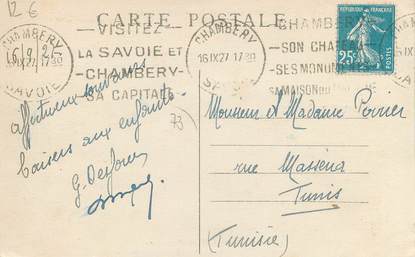 12 €
CARTE POSTALE
CHAMBERY
16 IX 27 17 30
SAVOIE
VISITEZ
LA SAVOIE ET
CHAMBERY
SA CAPITALE
CHAMBERY
16 IX 27 17 30
CHAMBERY
SON CHA
SES MONUM
SA MAISON
25c
POSTES
affectueux souvenirs
baisers aux enfants.
73
Monsieur et Madame Poirier
rue Masséna
Tunis
(Tunisie)